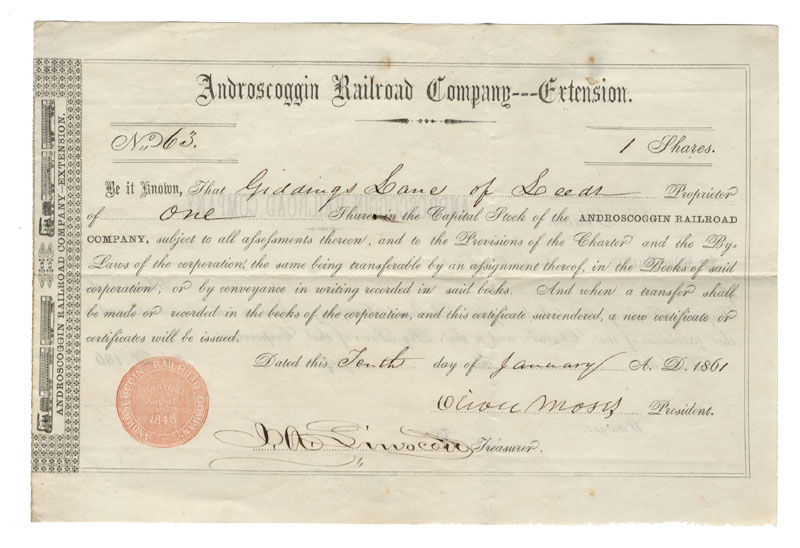 Androscoggin Railroad Company---Extension.
No. 63.
1 Shares.
Be it Known, That Giddings Lane of Leeds Proprietor
of One Share in the Capital Stock of the ANDROSCOGGIN RAILROAD
COMPANY, subject to all assessments thereon, and to the Provisions of the Charter and the By-
Laws of the corporation, the same being transferable by an assignment thereof, in the Books of said
corporation, or by conveyance in writing recorded in said books. And when a transfer shall
be made or recorded in the books of the corporation, and this certificate surrendered, a new certificate or
certificates will be issued.
Dated this Tenth day of January A. D. 1861
Oliver Moses President.
Treasurer.
ANDROSCOGGIN RAILROAD COMPANY—EXTENSION.
ANDROSCOGGIN RAILROAD COMPANY
1848